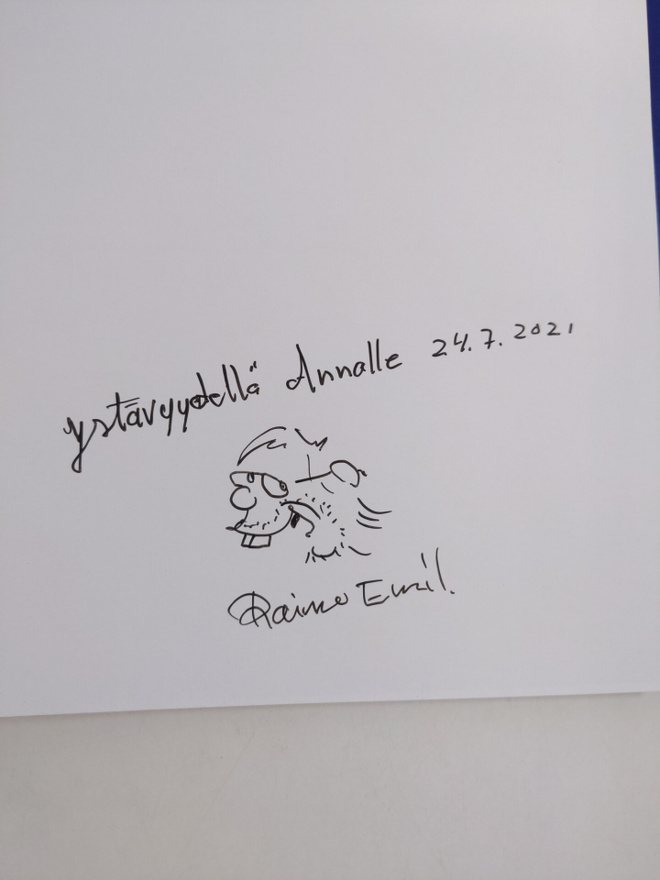 ystävyydellä Annalle 24.7.2021
Raimo Emil.